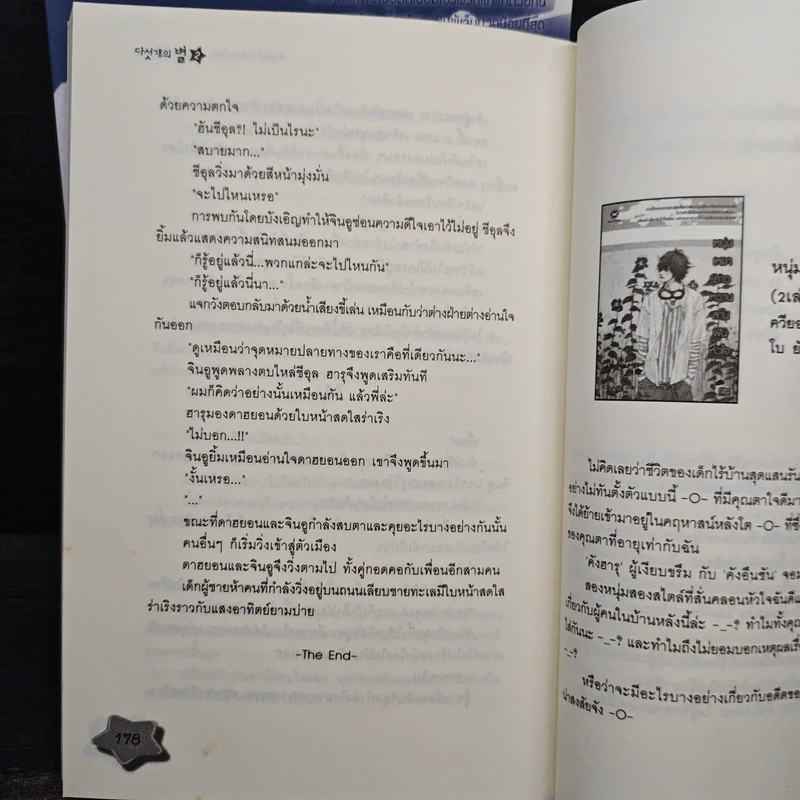 다섯개의 별 2
ด้วยความตกใจ
"ฮันชีอุล?! ไม่เป็นไรนะ"
"สบายมาก..."
ชีอุลวิ่งมาด้วยสีหน้ามุ่งมั่น
"จะไปไหนเหรอ"
การพบกันโดยบังเอิญทำให้จินอูซ่อนความดีใจเอาไว้ไม่อยู่ ชีอุลจึง
ยิ้มแล้วแสดงความสนิทสนมออกมา
"ก็รู้อยู่แล้วนี่...พวกแกล่ะจะไปไหนกัน"
"ก็รู้อยู่แล้วนี่นา..."
แจกวังตอบกลับมาด้วยน้ำเสียงขี้เล่น เหมือนกับว่าต่างฝ่ายต่างอ่านใจ
กันออก
"ดูเหมือนว่าจุดหมายปลายทางของเราคือที่เดียวกันนะ..."
จินอูพูดพลางตบไหล่ชีอุล ฮารุจึงพูดเสริมทันที
"ผมก็คิดว่าอย่างนั้นเหมือนกัน แล้วพี่ล่ะ"
ฮารุมองดาฮยอนด้วยใบหน้าสดใสร่าเริง
"ไม่บอก...!!"
จินอูยิ้มเหมือนอ่านใจดาฮยอนออก เขาจึงพูดขึ้นมา
"งั้นเหรอ..."
"..."
ขณะที่ดาฮยอนและจินอูกำลังสบตาและคุยอะไรบางอย่างกันนั้น
คนอื่นๆ ก็เริ่มวิ่งเข้าสู่ตัวเมือง
ดาฮยอนและจินอูจึงวิ่งตามไป ทั้งคู่กอดคอกับเพื่อนอีกสามคน
เด็กผู้ชายห้าคนที่กำลังวิ่งอยู่บนถนนเลียบชายทะเลมีใบหน้าสดใส
ร่าเริงราวกับแสงอาทิตย์ยามบ่าย
-The End-
178
หนุ่ม
(2เล่
ควียอ
ใบ ยั
ไม่คิดเลยว่าชีวิตของเด็กไร้บ้านสุดแสนรัน
อย่างไม่ทันตั้งตัวแบบนี้ -O- ที่มีคุณตาใจดีมา
จึงได้ย้ายเข้ามาอยู่ในคฤหาสน์หลังโต -O- ที่ซึ่
ของคุณตาที่อายุเท่ากับฉัน
'คังฮารุ' ผู้เงียบขรึม กับ 'คังอึนชัน' จอม
สองหนุ่มสองสไตล์ที่สั่นคลอนหัวใจฉันดีแ
เกี่ยวกับผู้คนในบ้านหลังนี้ล่ะ -_-? ทำไมทั้งคุณ
ใส่กันนะ -_-? และทำไมถึงไม่ยอมบอกเหตุผลเรื่
-_-?
หรือว่าจะมีอะไรบางอย่างเกี่ยวกับอดีตของ
น่าสงสัยจัง -O-